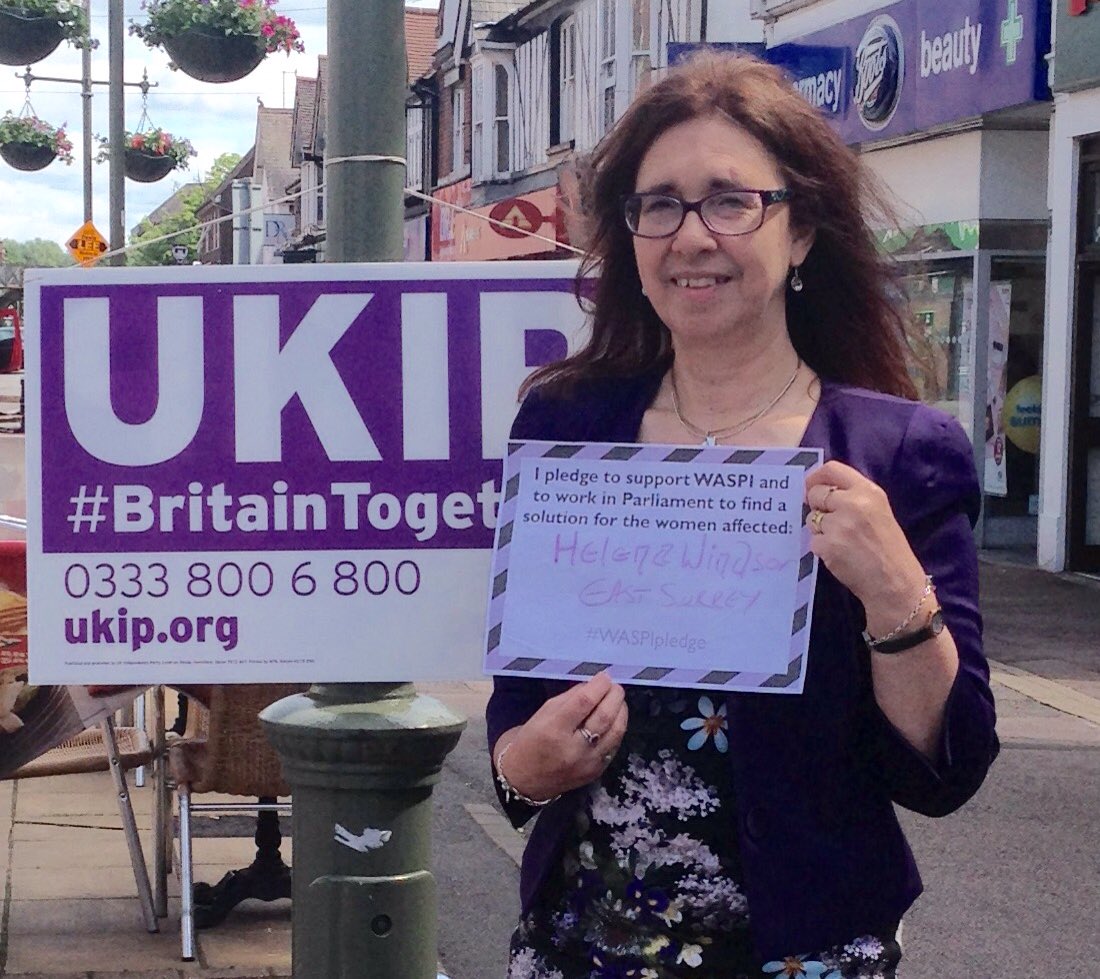 UKIP
#BritainToget
0333 800 6 800
ukip.org
I pledge to support WASPI and
to work in Parliament to find a
solution for the women affected:
Helena Windsor
EAST SURREY
#WASPIpledge
rmacy
Boots
beauty